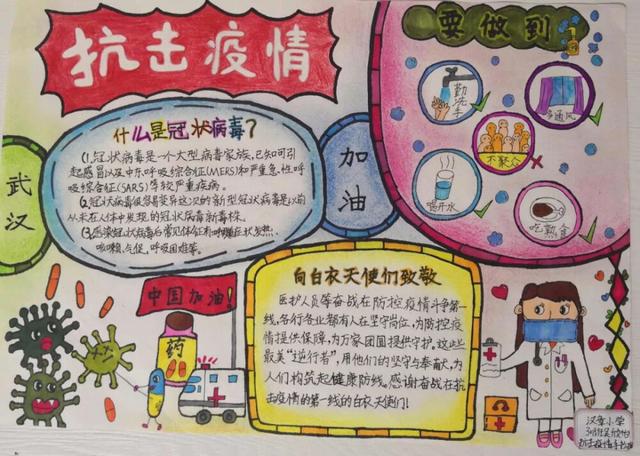 抗击疫情
要做到
勤洗手
多通风
不聚众
喝开水
吃熟食
武汉
加油
什么是冠状病毒?
(1.冠状病毒是一个大型病毒家族,已知可引
起感冒以及中东呼吸综合征(MERS)和严重急性呼
吸综合征(SARS)等较严重疾病。
(2.冠状病毒很容易变异这次的新型冠状病毒是以前
从未在人体中发现的冠状病毒新毒株。
(3.感染冠状病毒后常见体征有呼吸道症状、发热、
咳嗽、气促、呼吸困难等。
中国加油!
药
向白衣天使们致敬
医护人员等奋战在防控疫情斗争第一
线,各行各业都有人在坚守岗位,为防控疫
情提供保障,为万家团圆提供守护,这些
最美“逆行者”,用他们的坚守与奉献,为
人们构筑起健康防线。感谢奋战在抗
击疫情的第一线的白衣天使们!
小学